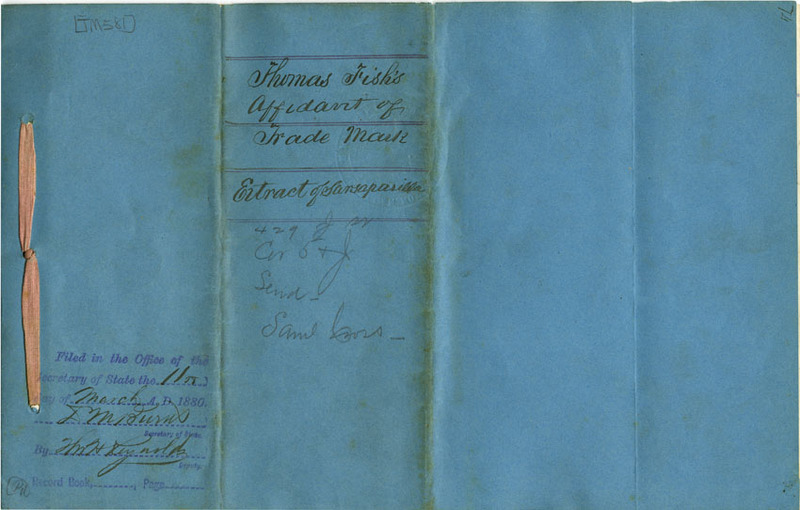 [TM581]
Thomas Fish's
Affidavit of
Trade Mark
Extract of Sarsaparilla
429 J
Cor 5th & J
Send
Saml
Filed in the Office of the
Secretary of State the 11th
day of March A. D. 1880.
D. M. Burns
Secretary of State.
By Wm H Reynolds
Deputy.
Record Book, Page